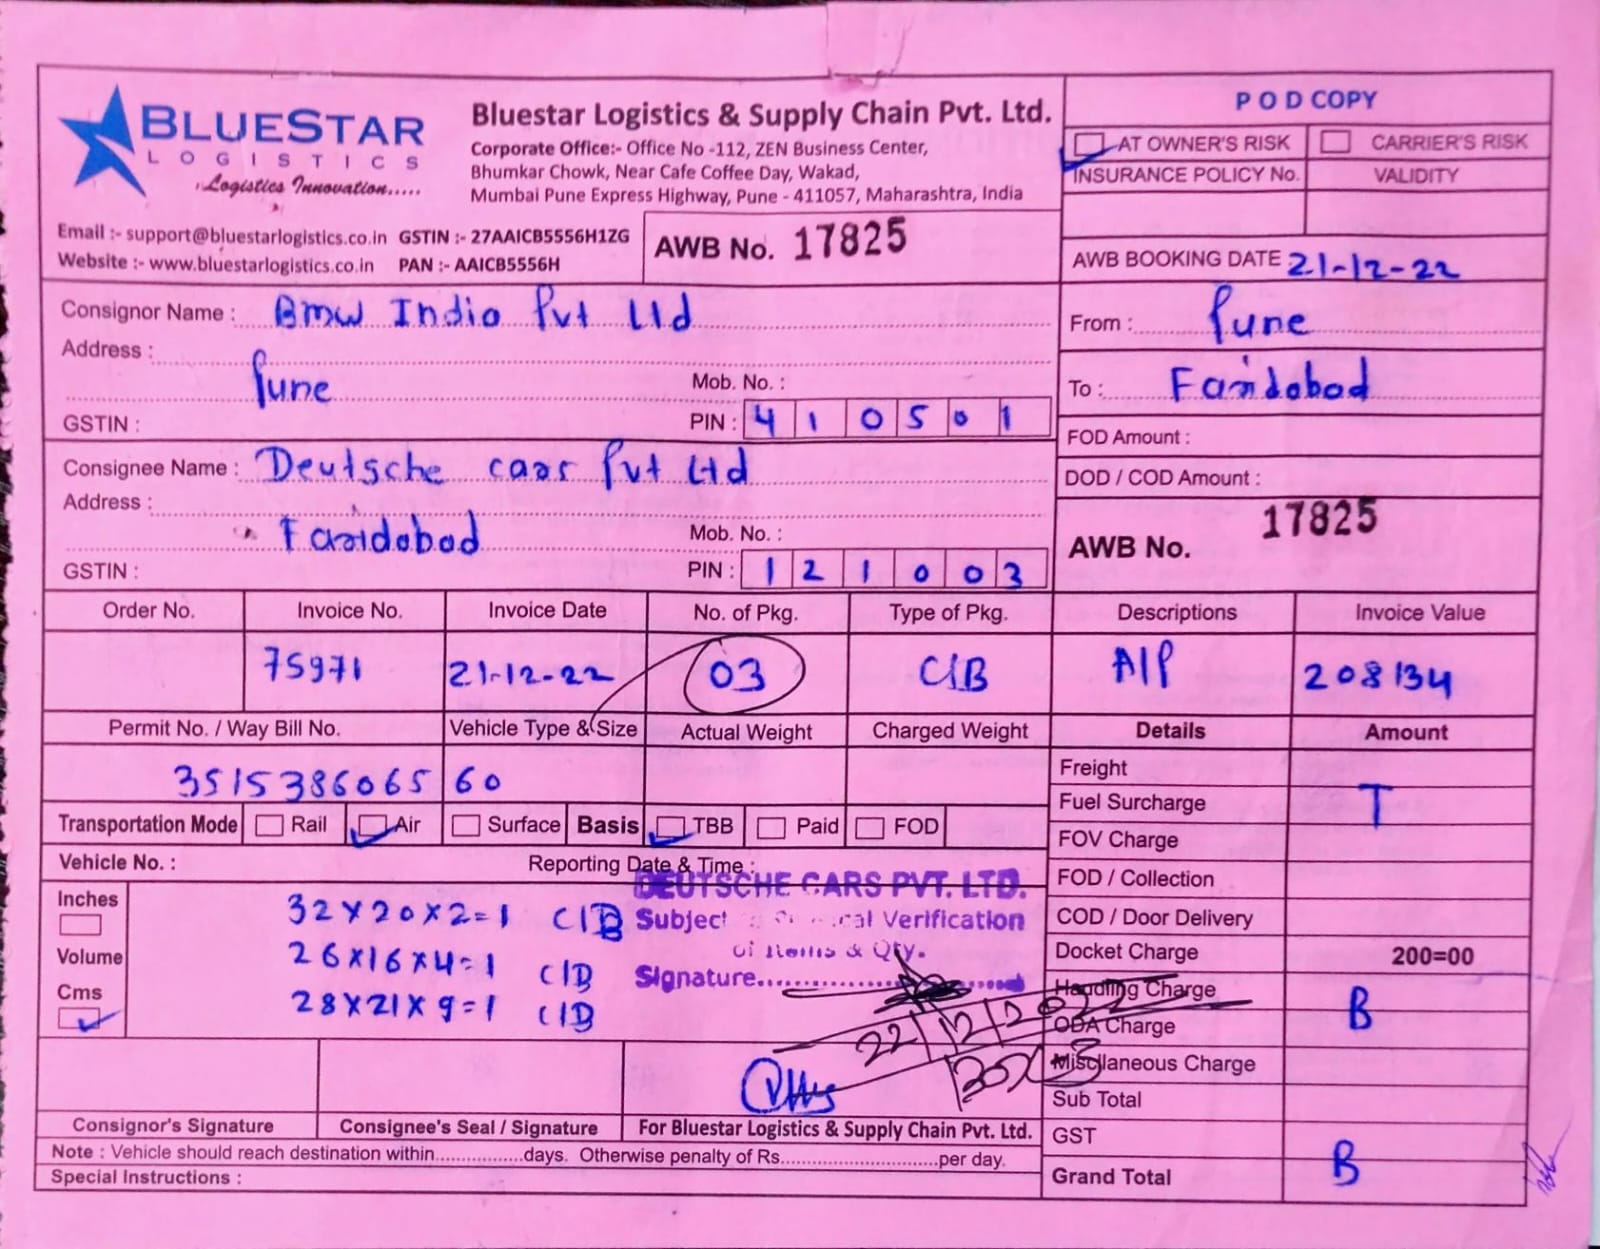 BLUESTAR
LOGISTICS
Logistics Innovation.....
Bluestar Logistics & Supply Chain Pvt. Ltd.
Corporate Office:- Office No -112, ZEN Business Center,
Bhumkar Chowk, Near Cafe Coffee Day, Wakad,
Mumbai Pune Express Highway, Pune - 411057, Maharashtra, India
Email :- support@bluestarlogistics.co.in GSTIN :- 27AAICB5556H1ZG
Website :- www.bluestarlogistics.co.in PAN :- AAICB5556H
AWB No. 17825
POD COPY
AT OWNER'S RISK CARRIER'S RISK
INSURANCE POLICY No. VALIDITY
AWB BOOKING DATE 21-12-22
Consignor Name : Bmw India Pvt Ltd
Address :
Pune
Mob. No. :
GSTIN : PIN : 410501
From : Pune
To : Faridabad
FOD Amount :
DOD / COD Amount :
Consignee Name : Deutsche caas Pvt Ltd
Address :
Faridabad
Mob. No. :
GSTIN : PIN : 121003
AWB No. 17825
Order No. Invoice No. Invoice Date No. of Pkg. Type of Pkg. Descriptions Invoice Value
75971 21-12-22 03 C/B A/P 208134
Permit No. / Way Bill No. Vehicle Type & Size Actual Weight Charged Weight Details Amount
351538606560
Freight
Fuel Surcharge T
FOV Charge
FOD / Collection
COD / Door Delivery
Docket Charge 200=00
Handling Charge
ODA Charge B
Miscllaneous Charge
Sub Total
GST
Grand Total B
Transportation Mode Rail Air Surface Basis TBB Paid FOD
Vehicle No. : Reporting Date & Time :
Inches
Volume
Cms
32x20x2=1 C/B
26x16x4=1 C/B
28x21x9=1 C/B
DEUTSCHE CARS PVT. LTD.
Subject Verification
of Items & Qty.
Signature
22/12/2022
Consignor's Signature Consignee's Seal / Signature For Bluestar Logistics & Supply Chain Pvt. Ltd.
Note : Vehicle should reach destination within...............days. Otherwise penalty of Rs...........................per day.
Special Instructions :